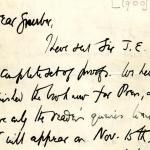 [1900]
ear Gruber,
I have sent Sir J. E.
complete set of proofs. We ha
inished the book now for Press, a
are only the reader's queries
t will appear on Nov. 15th,